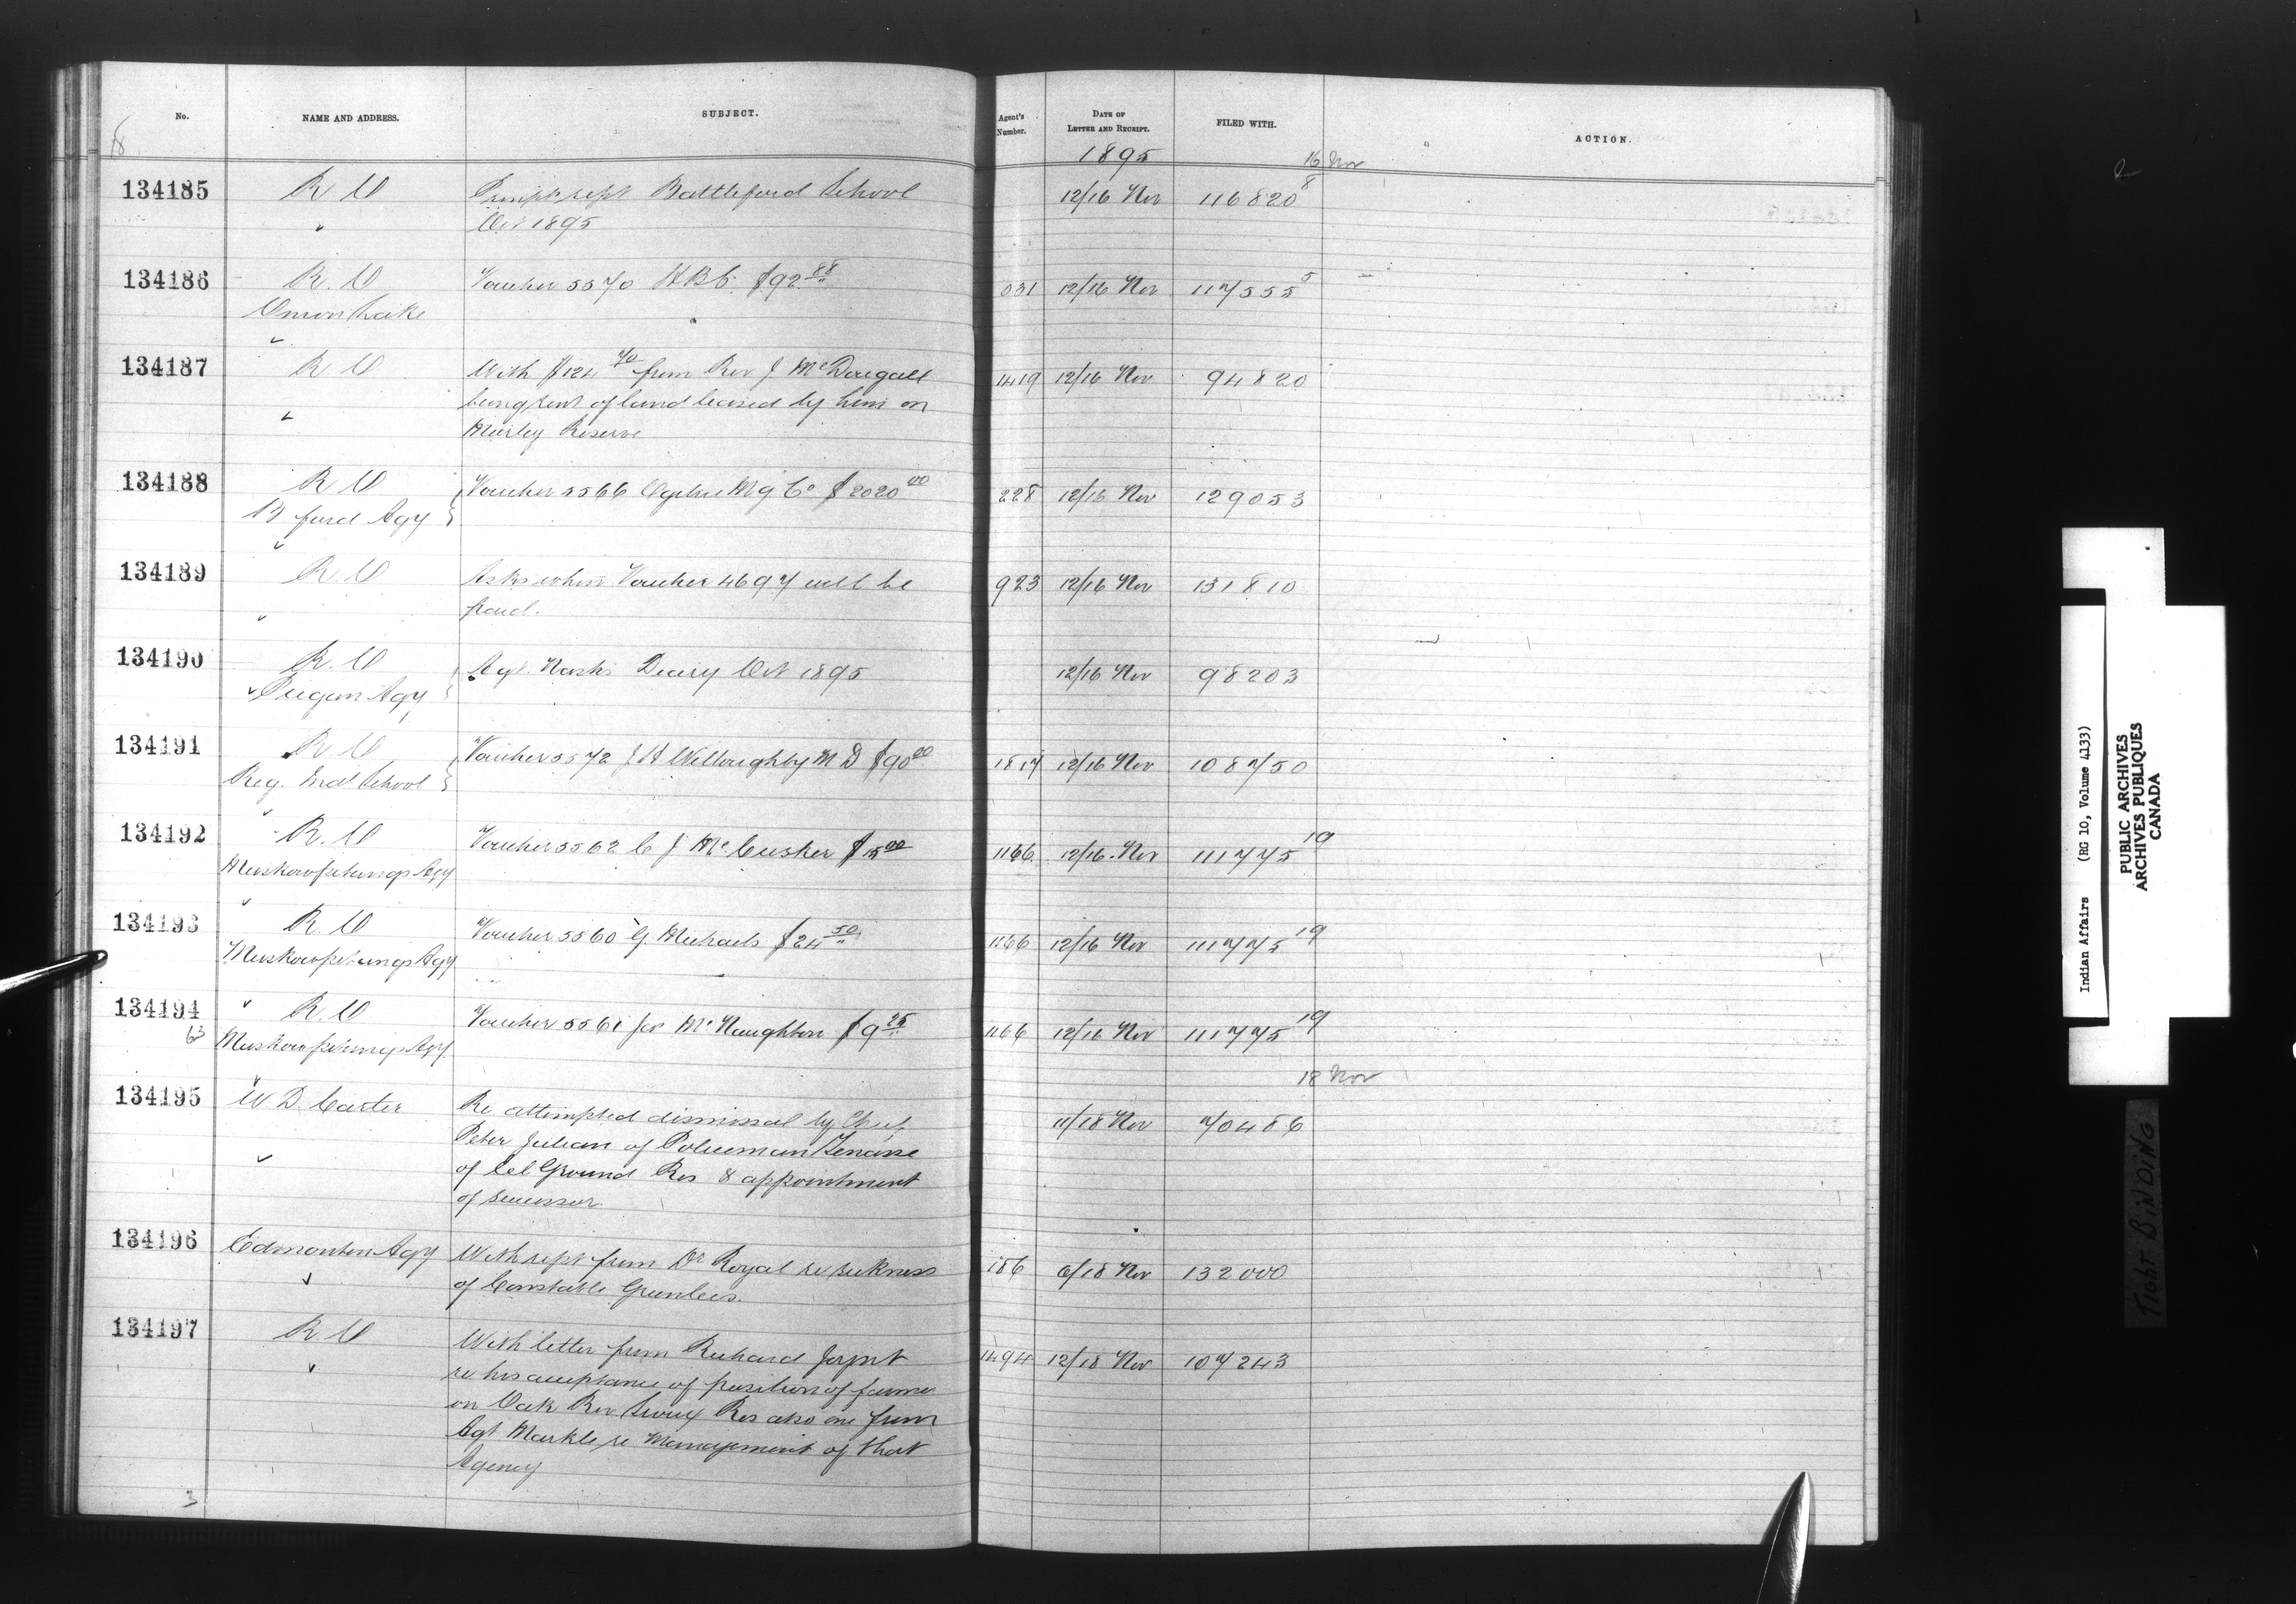 No. NAME AND ADDRESS. SUBJECT. Agent's Number. DATE OF LETTER AND RECEIPT. FILED WITH. ACTION.
1895 16 Nov
134185 R. O Battleford School 12/16 Nov 116820 8
" Oct 1895
134186 R. O Voucher 5570 H B C. $92 88 931 12/16 Nov 117555 5
Onion Lake
134187 R O With $124 70 from Rev J. McDougall 1419 12/16 Nov 94820
being rent of land leased by him on
Morley Reserve
134188 R O Voucher 5566 Ogilvie Mg Co $2020 00 228 12/16 Nov 129053
B ford Agy
134189 R. O Asks when Voucher 4697 will be 923 12/16 Nov 131810
paid.
134190 R. O Agt. Nash's Diary Oct 1895 12/16 Nov 98203
Piegan Agy
134191 R O Voucher 5572 J H Willoughby M D $90 00 1817 12/16 Nov 108750
Reg. Ind School
134192 R. O Voucher 5562 C J McCusker $15 00 1166 12/16 Nov 111775 19
Muskowpetungs Agy
134193 R. O Voucher 5560 G Michaels $24 50 1166 12/16 Nov 111775 19
Muskowpetungs Agy
134194 R. O Voucher 5561 Jos McNaughton $9 25 1166 12/16 Nov 111775 19
63 Muskowpetungs Agy
18 Nov
134195 W D. Carter Re attempted dismissal by Chief 11/18 Nov 70486
Peter Julian of Policeman
of Eel Ground Res & appointment
of successor.
134196 Edmonton Agy With rept from Dr Royal re sickness 186 6/18 Nov 132000
of Constable Greenlees.
134197 R O With letter from Richard Joynt 1494 12/18 Nov 107243
re his acceptance of position of farmer
on Oak Riv Sioux Res also one from
Agt Markle re Management of that
Agency
3
Indian Affairs (RG 10, Volume 4133)
PUBLIC ARCHIVES
ARCHIVES PUBLIQUES
CANADA
TIGHT BINDING